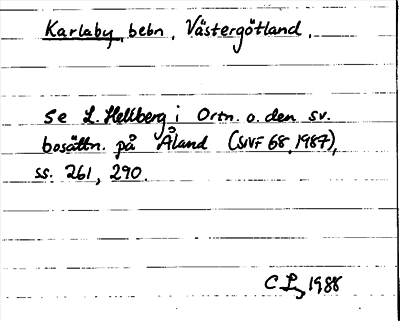 Karlaby, bebn, Västergötland.
Se L. Hellberg i Ortn. o. den sv.
bosättn. på Åland (SNF 68, 1987),
ss. 261, 290.
1988